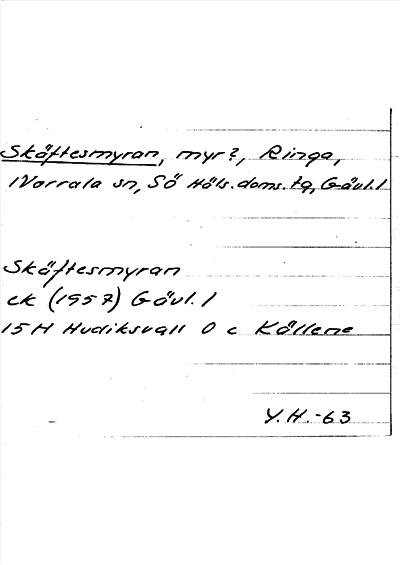 Skäftesmyran, myr?, Ringa,
Norrala sn, Sö Häls. doms. tg, Gävl. l
Skäftesmyran
ek (1957) Gävl. l
15H Hudiksvall 0 c Källene
Y.H.-63